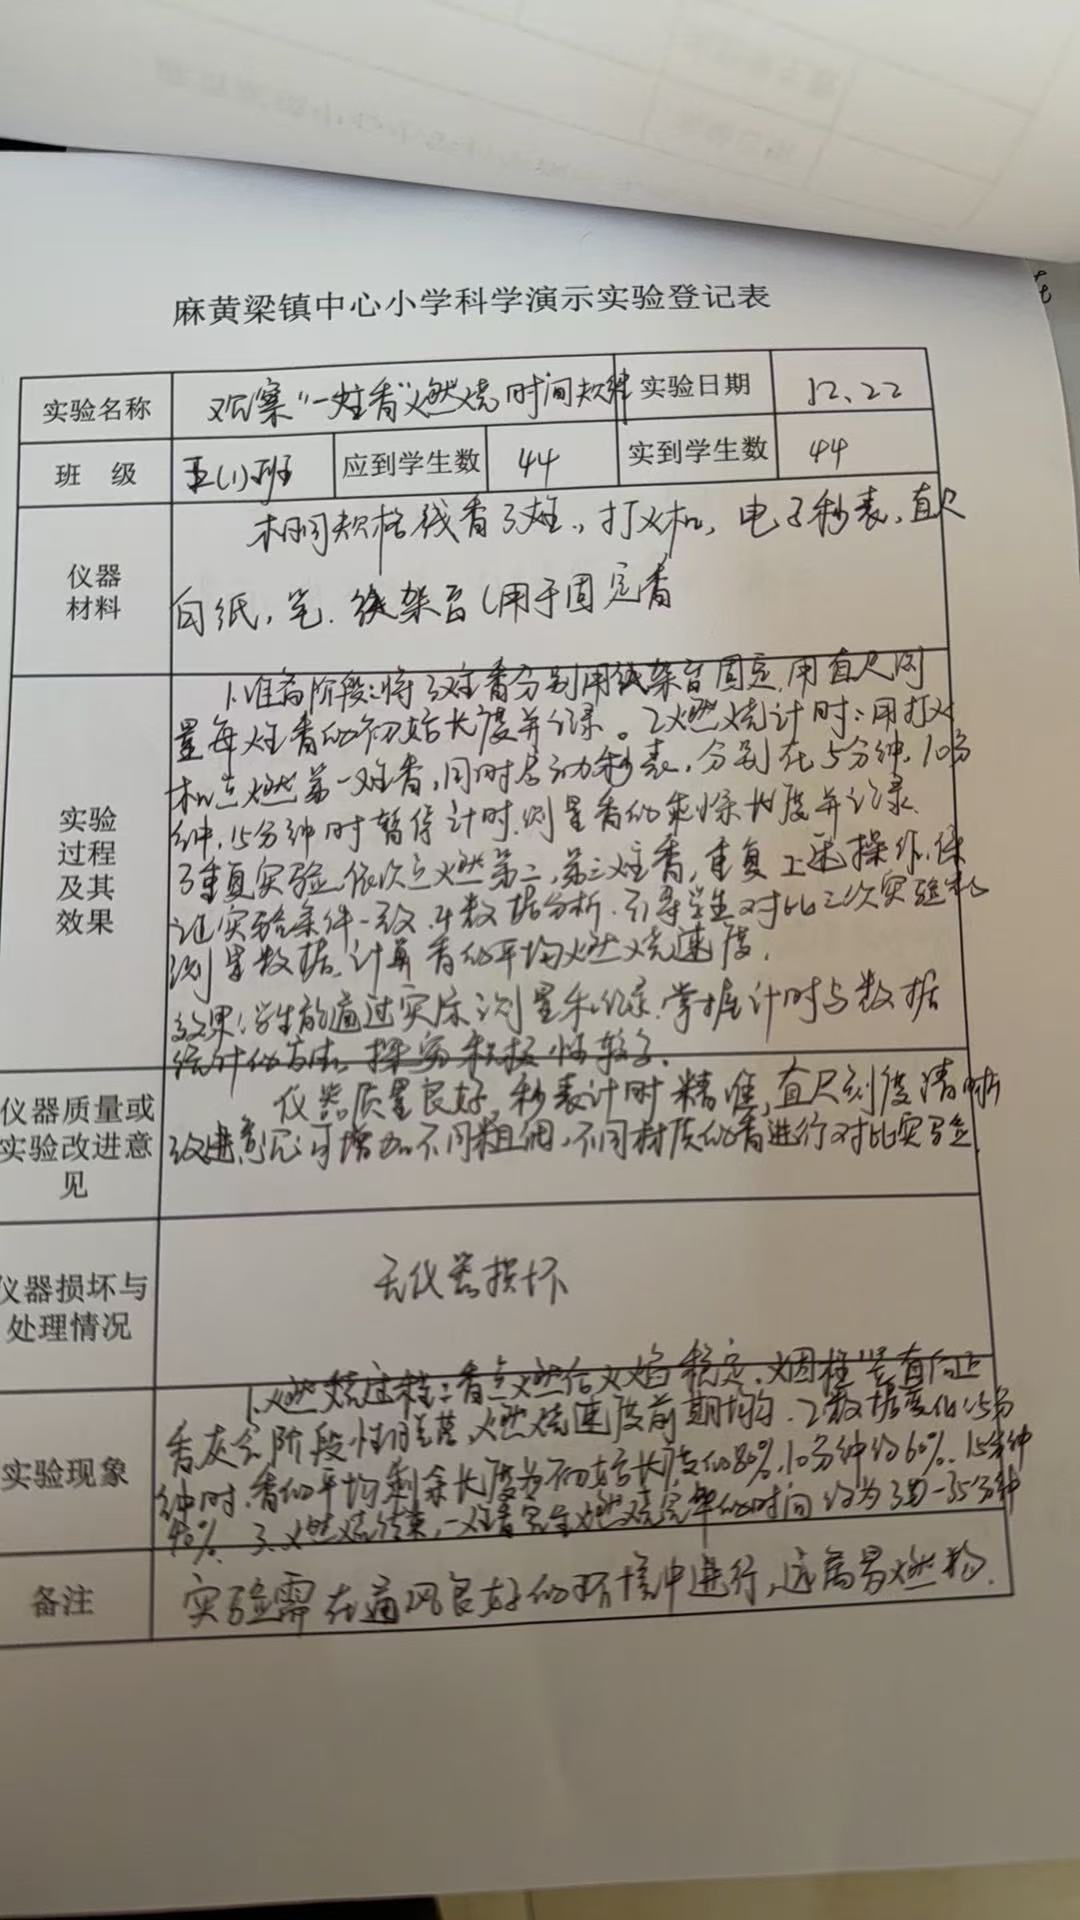 麻黄梁镇中心小学科学演示实验登记表
实验名称 观察“一炷香”燃烧时间规律 实验日期 12、22
班 级 五(1)班 应到学生数 44 实到学生数 44
仪器材料
相同规格线香3炷、打火机，电子秒表、直尺
白纸，笔. 铁架台(用于固定香
实验过程及其效果
1.准备阶段:将3炷香分别用铁架台固定.用直尺测
量每炷香的初始长度并记录。2燃烧计时:用打火
机点燃第一炷香,同时启动秒表,分别在5分钟.10分
钟.15分钟时暂停计时.测量香的剩余长度并记录.
3重复实验.依次点燃第二,第三炷香,重复上述操作,保
证实验条件一致.4数据分析.引导学生对比三次实验的
测量数据,计算香的平均燃烧速度.
效果:学生能通过实际测量和记录.掌握计时与数据
统计的方法,探究积极性较高.
仪器质量或实验改进意见
仪器质量良好,秒表计时精准,直尺刻度清晰
改进意见:可增加不同粗细,不同材质的香进行对比实验.
仪器损坏与处理情况
无仪器损坏
实验现象
1.燃烧过程:香点燃后火焰稳定.烟柱竖直向上
香灰会阶段性掉落,燃烧速度前期均匀.2数据变化:5分
钟时.香的平均剩余长度为初始长度的80%,10分钟约60%.15分钟
40%. 3.燃烧结束,一炷香完全燃烧完毕的时间约为30-35分钟
备注
实验需在通风良好的环境中进行,远离易燃物.